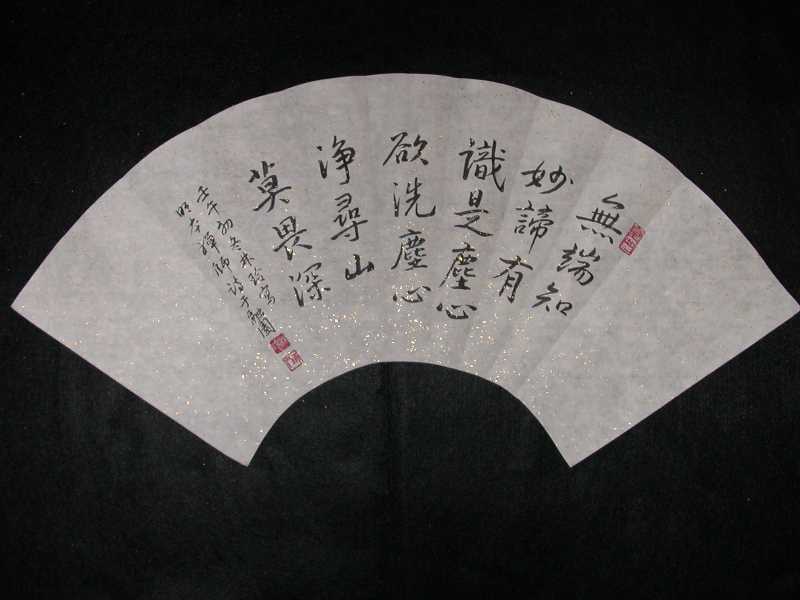 無端知
妙諦有
識是塵心
欲洗塵心
淨尋山
莫畏深
壬午初冬林
寫
明本禪師詩于
園